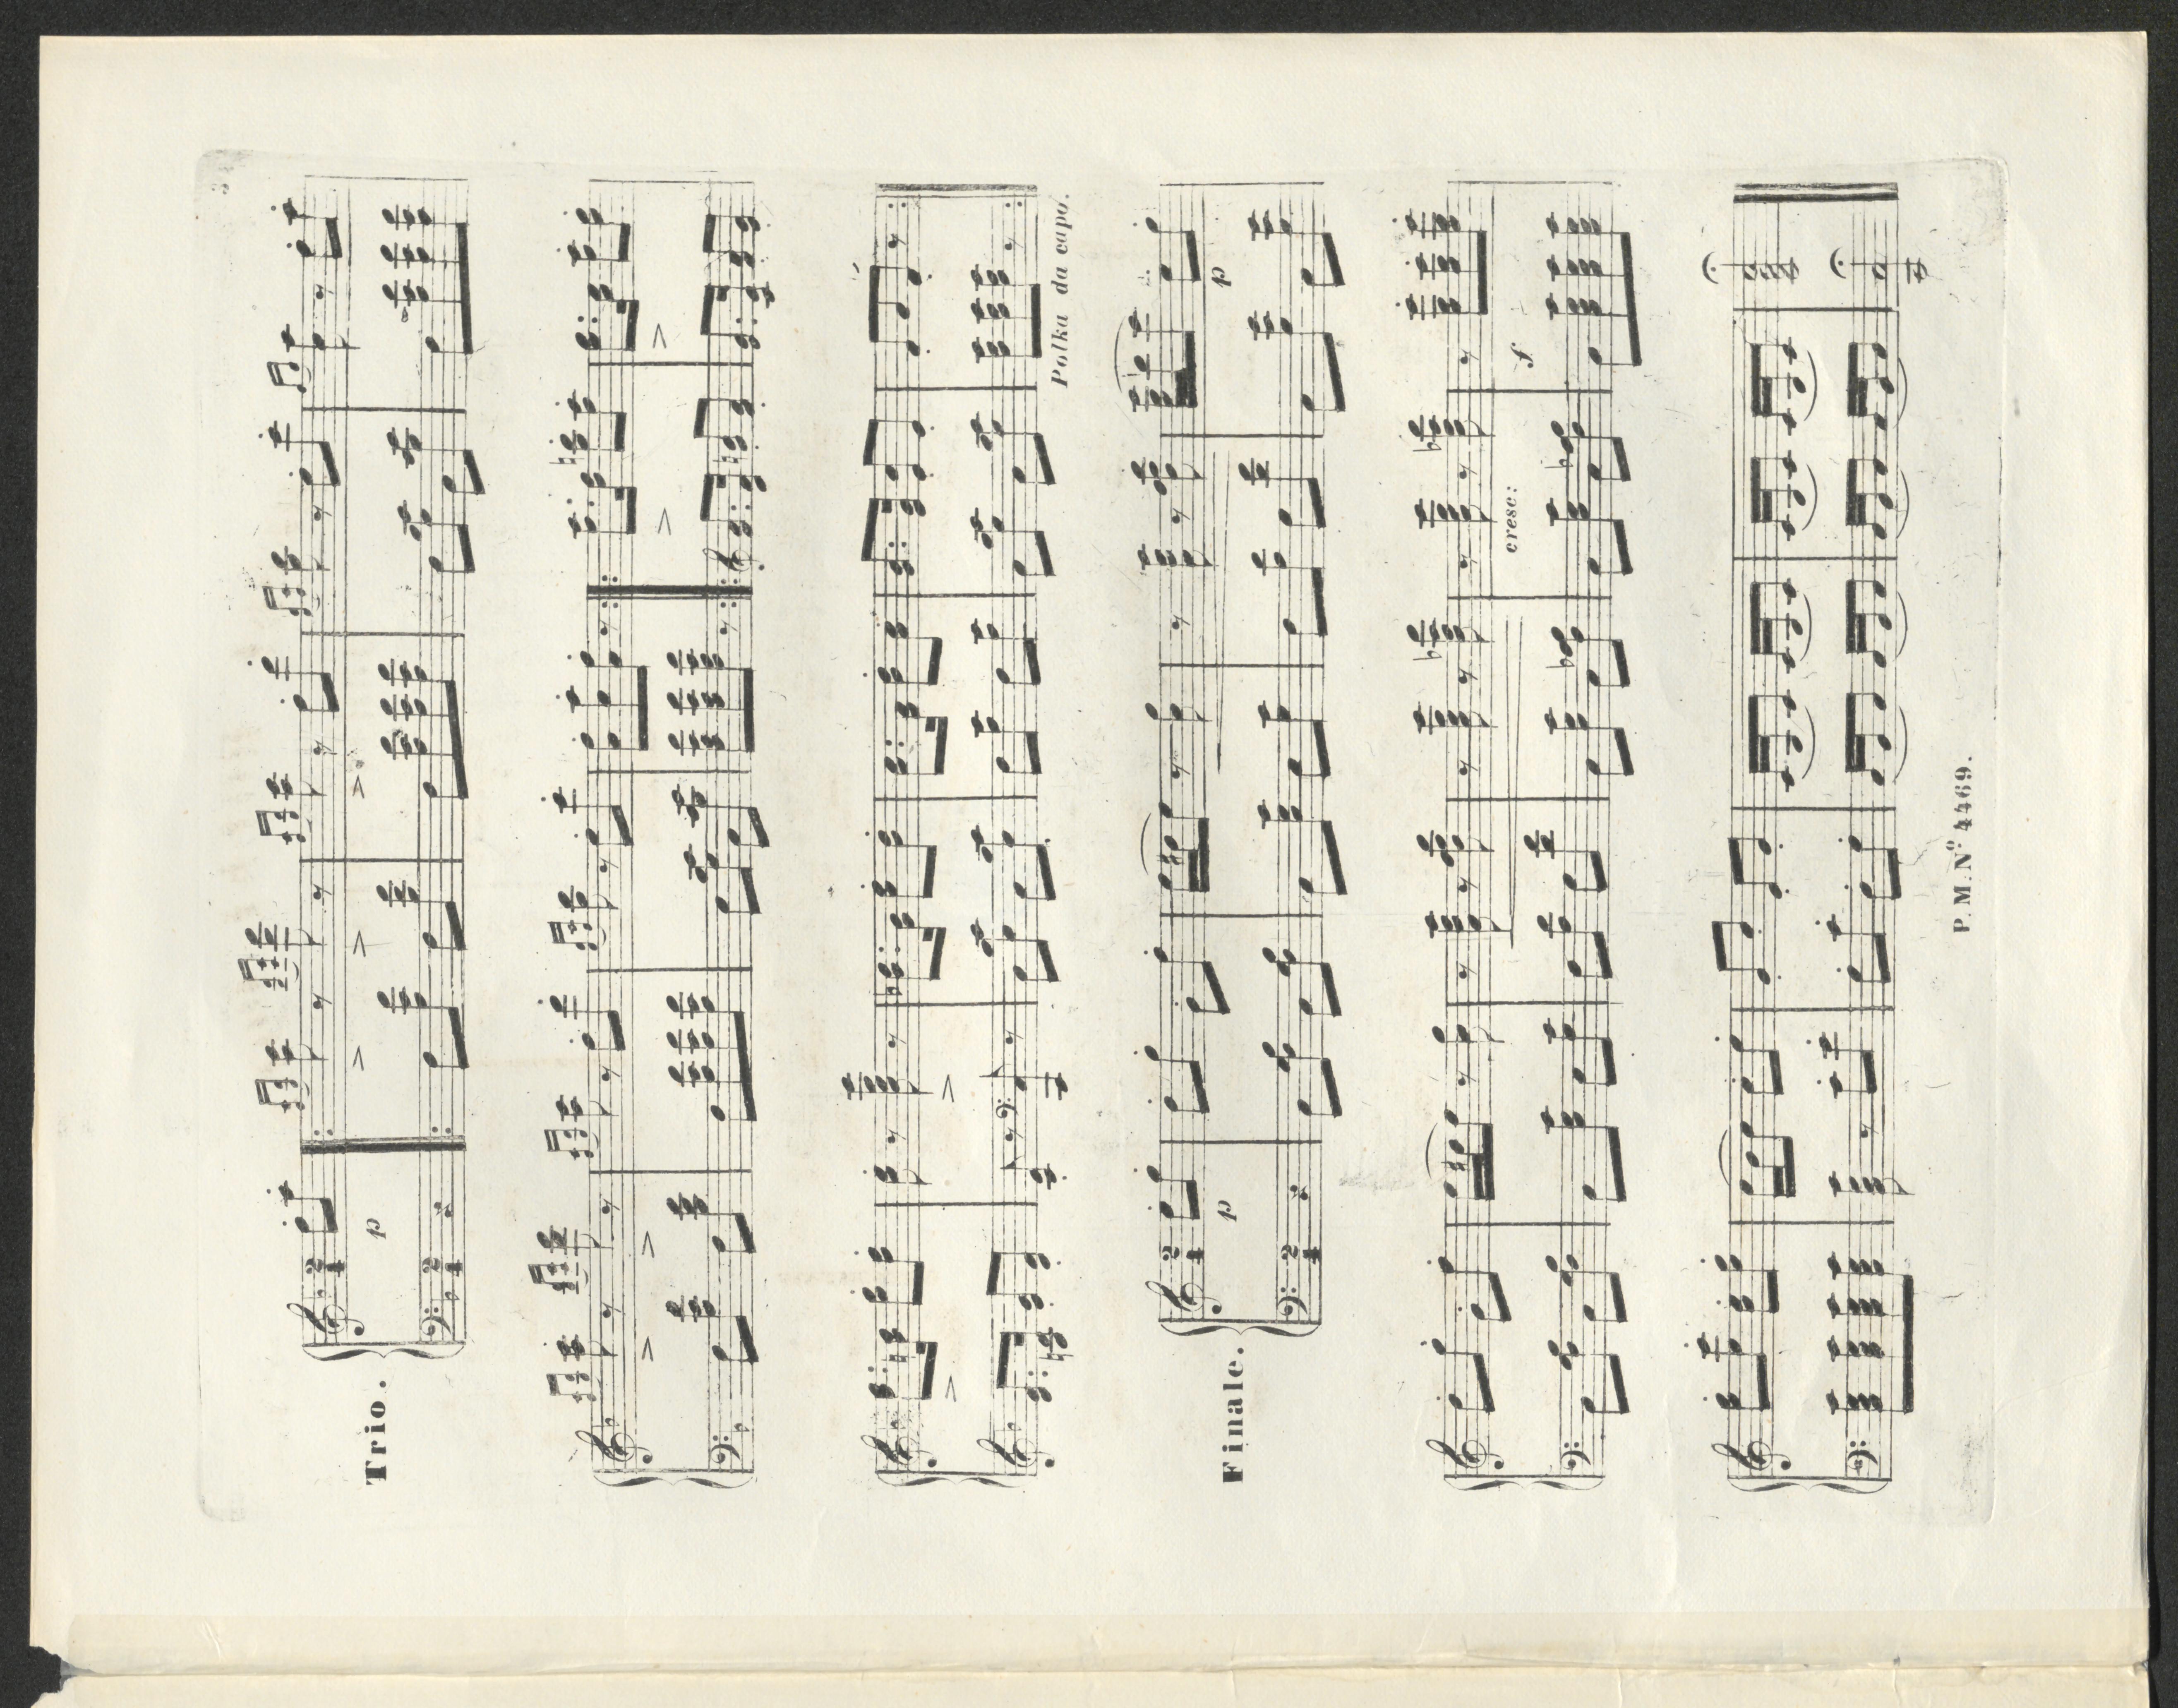 Trio.
p
Polka da capo.
Finale.
p
p
cresc:
f
P. M. Nº 4469.